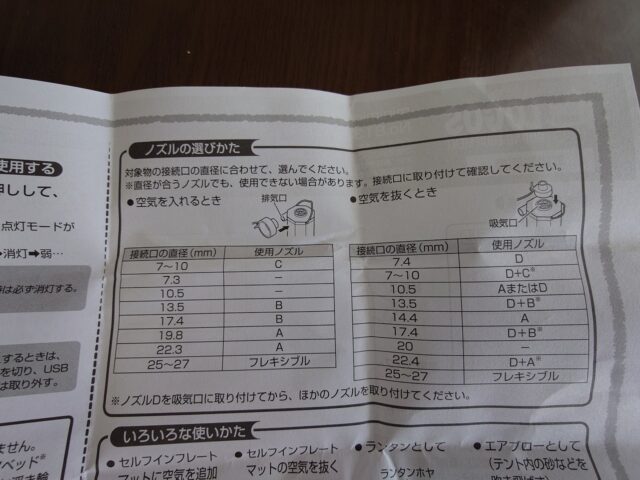 ノズルの選びかた
対象物の接続口の直径に合わせて、選んでください。
※直径が合うノズルでも、使用できない場合があります。接続口に取り付けて確認してください。
●空気を入れるとき
排気口
接続口の直径(mm) 使用ノズル
7〜10 C
7.3 −
10.5 −
13.5 B
17.4 B
19.8 A
22.3 A
25〜27 フレキシブル
●空気を抜くとき
吸気口
接続口の直径(mm) 使用ノズル
7.4 D
7〜10 D+C※
10.5 AまたはD
13.5 D+B※
14.4 A
17.4 D+B※
20 −
22.4 D+A※
25〜27 フレキシブル
※ノズルDを吸気口に取り付けてから、ほかのノズルを取り付けてください。
いろいろな使いかた
●セルフインフレート
マットに空気を追加
●セルフインフレート
マットの空気を抜く
●ランタンとして
ランタンホヤ
●エアブローとして
(テント内の砂などを
使用する
押しして、
点灯モードが
➡消灯➡弱…
は必ず消灯する。
するときは、
を切り、USB
は取り外す。
ません。
ベッド※